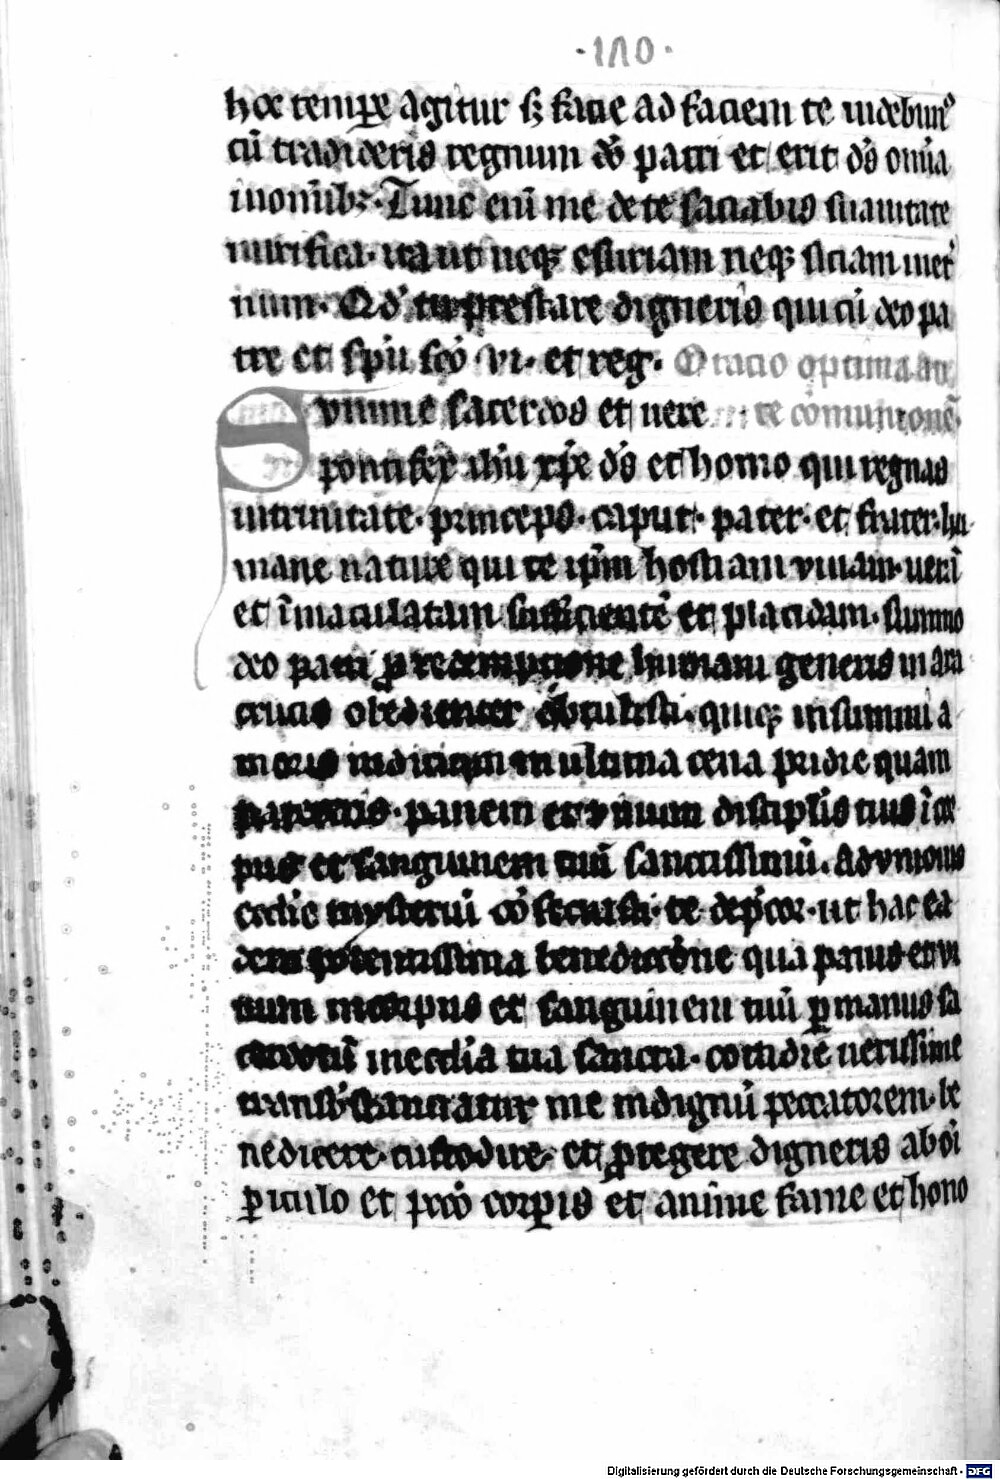 ·1Λ0·
hoc temp̲e agitur sꝫ facie ad faciem te videbimꝰ
cū tradideris regnum dō patri et erit dˢ omīa
inomībꝫ· Tunc enī me de te saciabis suauitate
mirifica· ita ut neqꝫ esuriam neqꝫ siciam inet̉
num· Qd̓ tu prestare digneris qui cū deo pa
tre et spū scō vi· et reg· Oracio optima an
Summe sacerdos et uere te cōmunionē·
pontifex ihū xp̄e dˢ et homo qui regnas
intrinitate· princeps· caput· pater· et frater· hu
mane nature qui te ip̄m hostiam viuam· uerā
et īmaculatam sufficientē et placidam· summo
deo patri ꝓ redemptione humani generis in ara
crucis obedienter obtulisti· quiqꝫ insummi a
moris indicium in ultima cena pridie quam
patereris· panem et vinum discipl̄is tuis ī cor
pus et sanguinem tuū sanctissimū· ad vnionis
eccl̄ie mysteriū cōsecrasti· te dep̄cor· ut hac ea
dem potentissima benedictōne qua panis et vi
num incorpus et sanguinem tuū ꝑ manus sa
cerdotū ineccl̄ia tua sancta· cottidie uerissime
transb̄stanciatur me indignū peccatorem· be
nedicere· custodire· et ꝓtegere digneris ab oī
ꝑiculo et pccō corpis et anime fame et hono
Digitalisierung gefördert durch die Deutsche Forschungsgemeinschaft - DFG